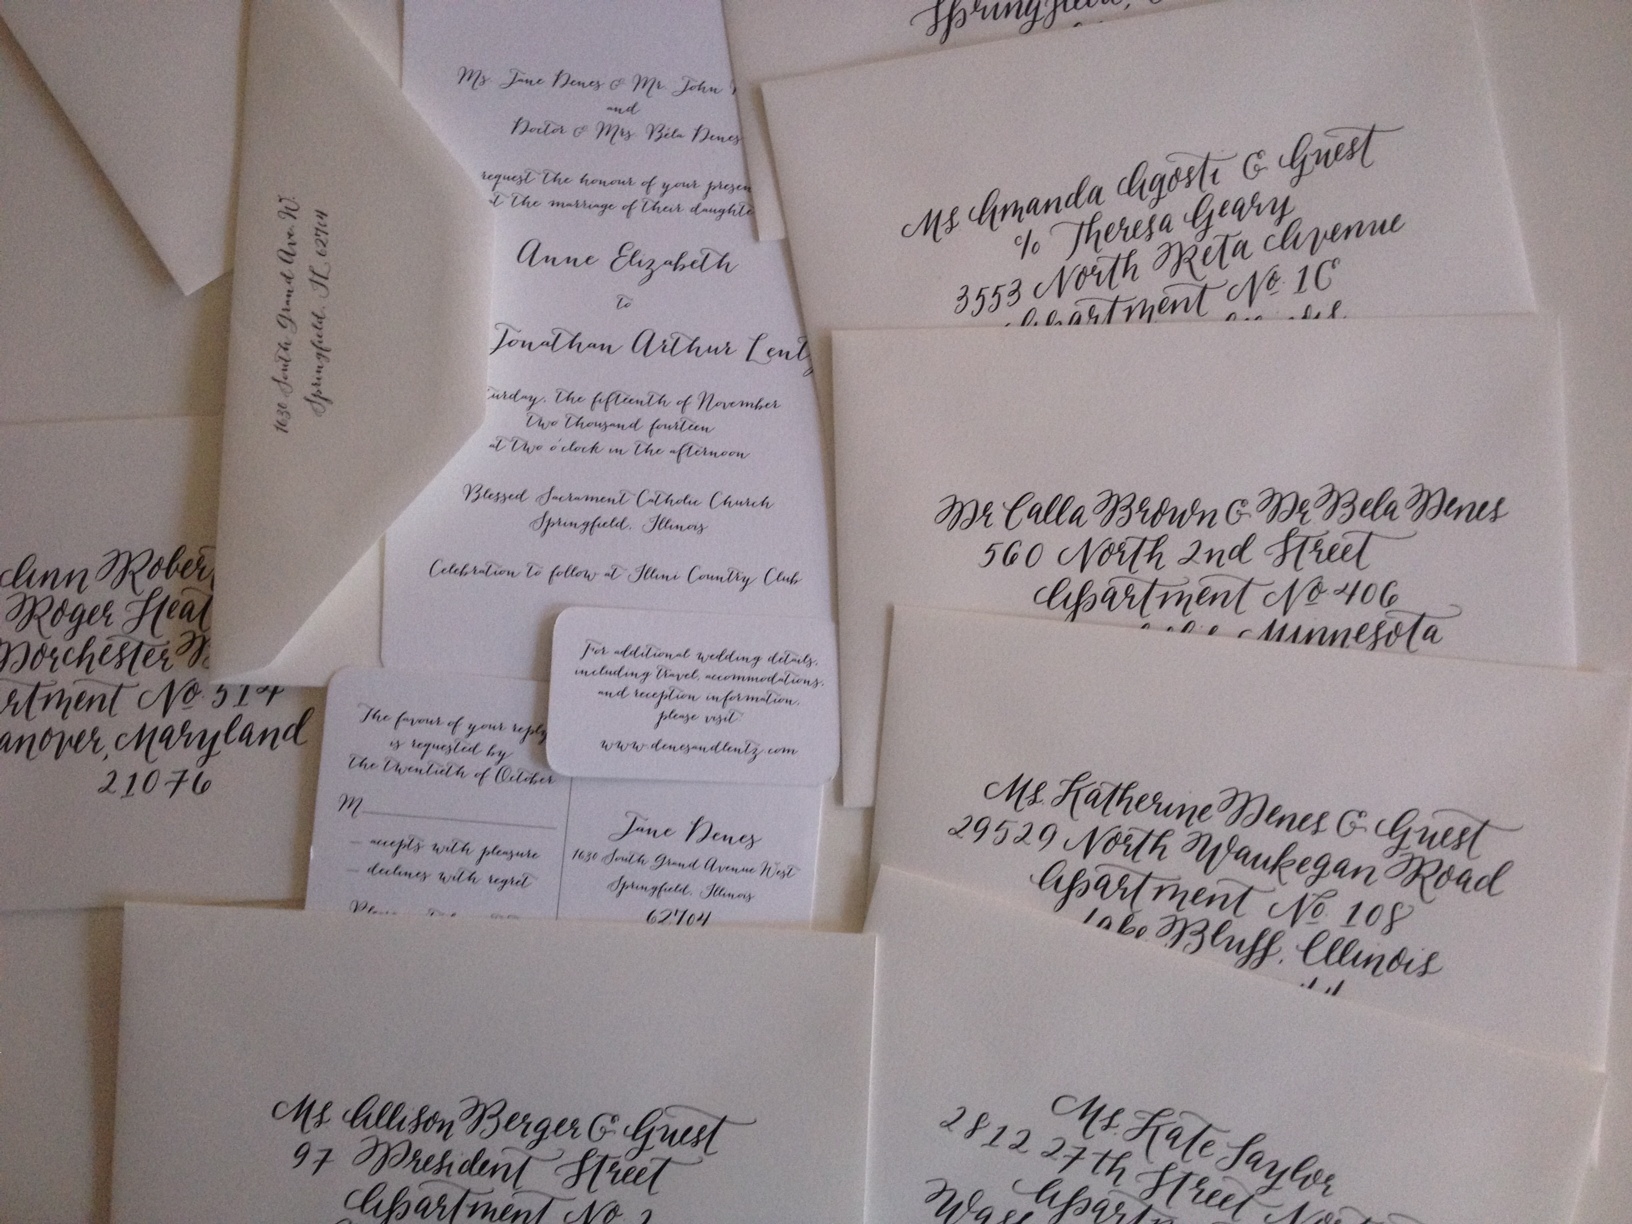 1630 South Grand Ave. W.
Springfield, IL 62704
Ms Jane Denes & Mr. John
and
Doctor & Mrs Béla Denes
request the honour of your presen
at the marriage of their daughte
Anne Elizabeth
to
Jonathan Arthur Lentz
turday, the fifteenth of November
two thousand fourteen
at two o'clock in the afternoon
Blessed Sacrament Catholic Church
Springfield, Illinois
Celebration to follow at Illini Country Club
For additional wedding details,
including travel, accommodations,
and reception information,
please visit
www.denesandlentz.com
The favour of your reply
is requested by
the twentieth of October
M
accepts with pleasure
declines with regret
Jane Denes
1630 South Grand Avenue West
Springfield, Illinois
62704
Springfield,
Ms Amanda Agosti & Guest
c/o Theresa Geary
3553 North Reta Avenue
Apartment No. 1C
Dr Calla Brown & Dr Bela Denes
560 North 2nd Street
Apartment No 406
Minnesota
Ms. Katherine Denes & Guest
29529 North Waukegan Road
Apartment No. 108
Lake Bluff, Illinois
Ann Rober
Roger Heat
Dorchester
rtment No. 514
anover, Maryland
21076
Ms. Allison Berger & Guest
97 President Street
Apartment No. 2
Ms. Kate Saylor
2812 27th Street Nort
Apartm
Wash